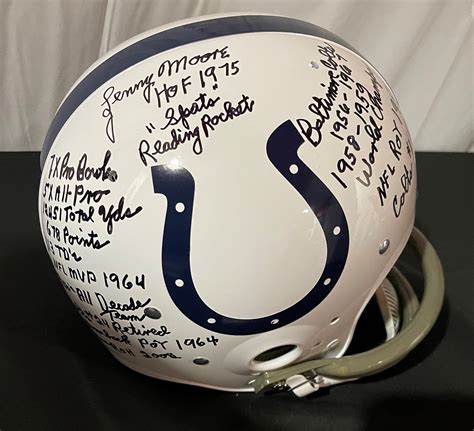 Lenny Moore
HOF 1975
"Spats"
Reading Rocket
7X Pro Bowl
5X All Pro
12,451 Total Yds
678 Points
TD's
NFL MVP 1964
All Decade
Team
Retired
POY 1964
Baltimore Colts
1956-1967
1958-1959
World Champs
NFL ROY
Colts